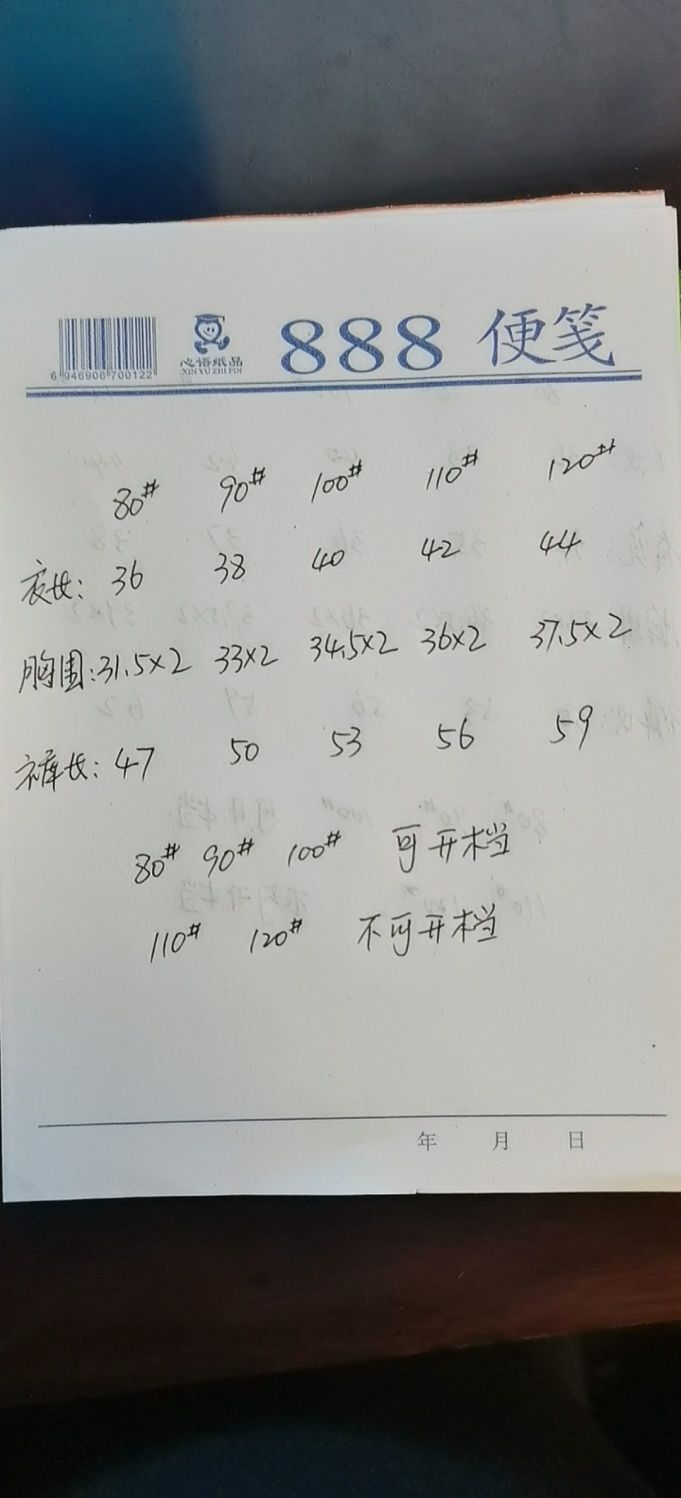 888 便笺
心语纸品
XIN YU ZHI PIN
6 946906 700122
80# 90# 100# 110# 120#
衣长: 36 38 40 42 44
胸围: 31.5×2 33×2 34.5×2 36×2 37.5×2
裤长: 47 50 53 56 59
80# 90# 100# 可开档
110# 120# 不可开档
年 月 日